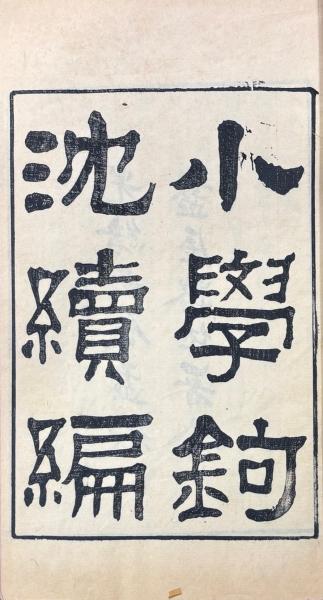 小學鉤
沈續編